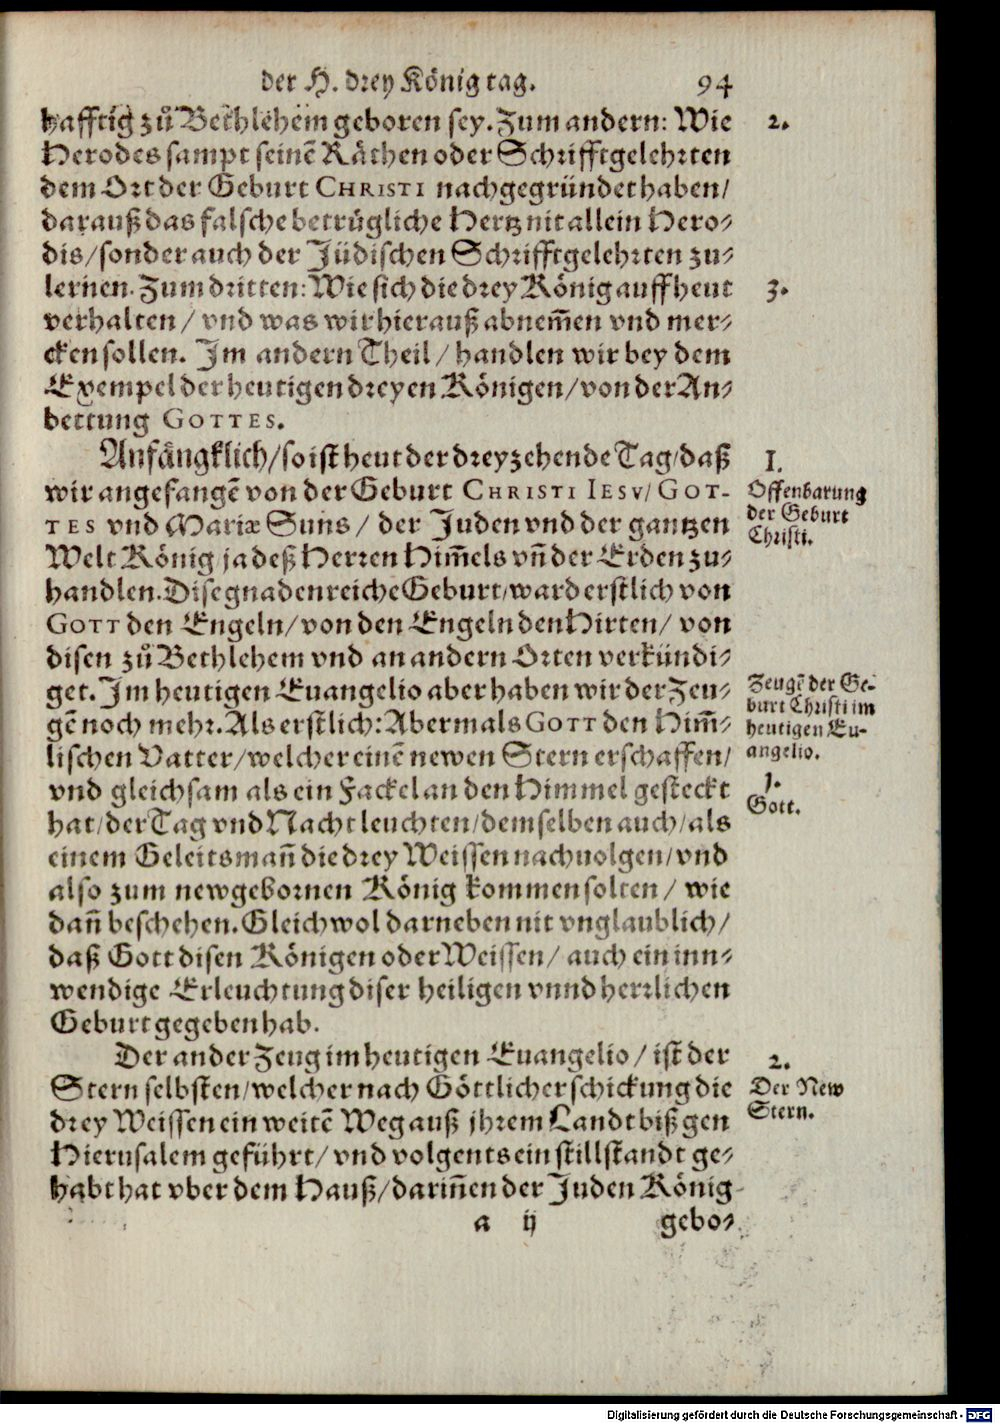 der H. drey König tag. 94
hafftig zů Bethlehem geboren sey. Zum andern: Wie
2.
Herodes sampt seinẽ Räthen oder Schrifftgelehrten
dem Ort der Geburt CHRISTI nachgegründet haben/
darauß das falsche betrügliche Hertz nit allein Hero⸗
dis/ sonder auch der Jüdischen Schrifftgelehrten zu⸗
lernen. Zum dritten: Wie sich die drey König auff heut
3.
verhalten / vnd was wir hierauß abnem̃en vnd mer⸗
cken sollen. Im andern Theil / handlen wir bey dem
Exempel der heutigen dreyen Königen/ von der An⸗
bettung GOTTES.
Anfängklich/ so ist heut der dreyzehende Tag/ daß
wir angefangẽ von der Geburt CHRISTI IESV/ GOT-
TES vnd Mariæ Suns / der Juden vnd der gantzen
Welt König/ ja deß Herren Him̃els vñ der Erden zu⸗
handlen. Dise gnadenreiche Geburt/ ward erstlich von
GOTT den Engeln/ von den Engeln den Hirten/ von
disen zů Bethlehem vnd an andern Orten verkündi⸗
get. Im heutigen Euangelio aber haben wir der Zeu⸗
gẽ noch mehr. Als erstlich: Abermals GOTT den Him̃⸗
lischen Vatter/ welcher einẽ newen Stern erschaffen/
vnd gleichsam als ein Fackel an den Himmel gesteckt
hat/ der Tag vnd Nacht leuchten/ demselben auch/ als
einem Geleitsmañ die drey Weissen nachuolgen/ vnd
also zum newgebornen König kommen solten / wie
dañ beschehen. Gleichwol darneben nit vnglaublich/
daß Gott disen Königen oder Weissen/ auch ein inn⸗
wendige Erleuchtung diser heiligen vnnd herrlichen
Geburt gegeben hab.
I.
Offenbarung
der Geburt
Christi.
Zeugẽ der Ge-
burt Christi im
heutigen Eu-
angelio.
1.
Gott.
Der ander Zeug im heutigen Euangelio / ist der
Stern selbsten/ welcher nach Göttlicher schickung die
drey Weissen ein weitẽ Weg auß jhrem Landt biß gen
Hierusalem geführt/ vnd volgents ein stillstandt ge⸗
habt hat vber dem Hauß/ dariñen der Juden König
2.
Der New
Stern.
a ij gebo⸗
Digitalisierung gefördert durch die Deutsche Forschungsgemeinschaft - DFG